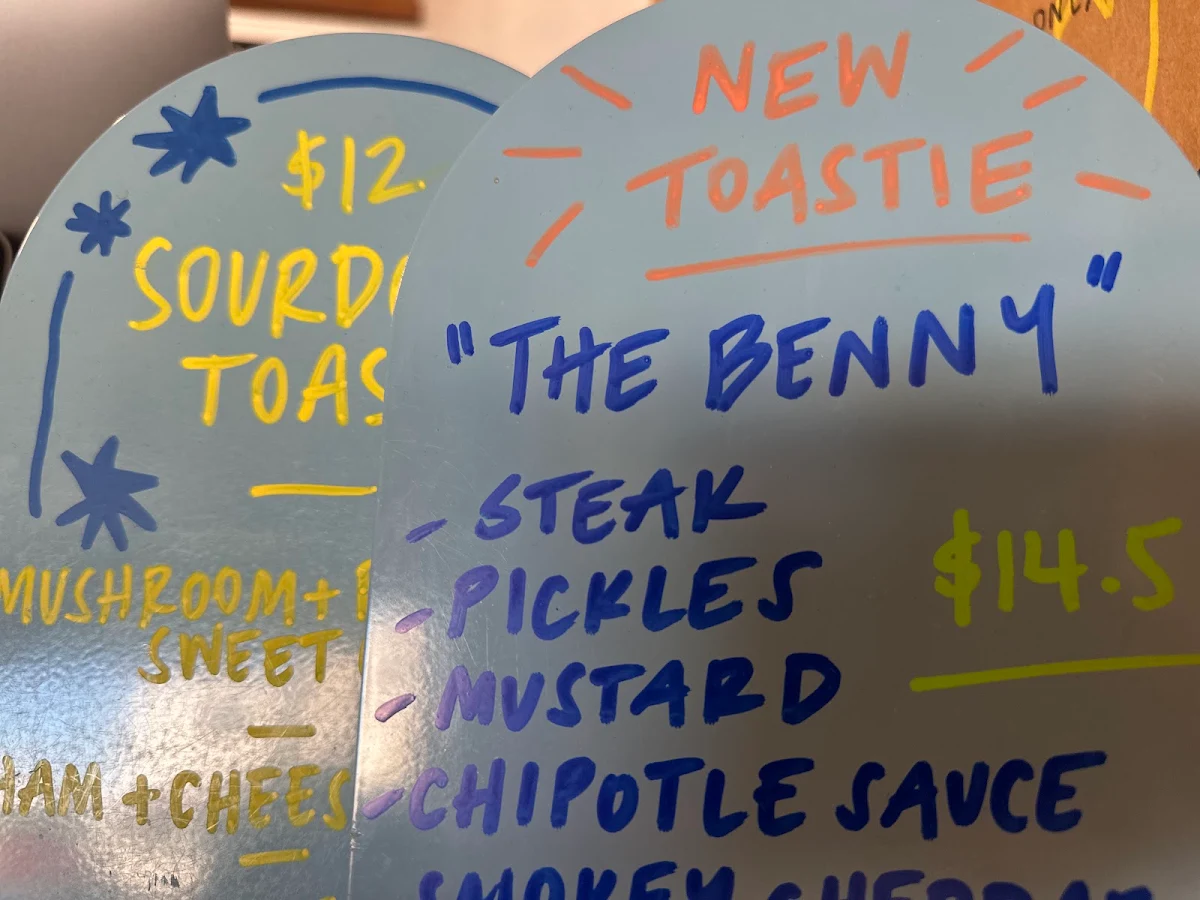 $12.
SOURD
TOAS
MUSHROOM +
SWEET
HAM + CHEES
NEW
TOASTIE
"THE BENNY"
- STEAK
- PICKLES
- MUSTARD
- CHIPOTLE SAUCE
SMOKEY CHEDDAR
$14.5